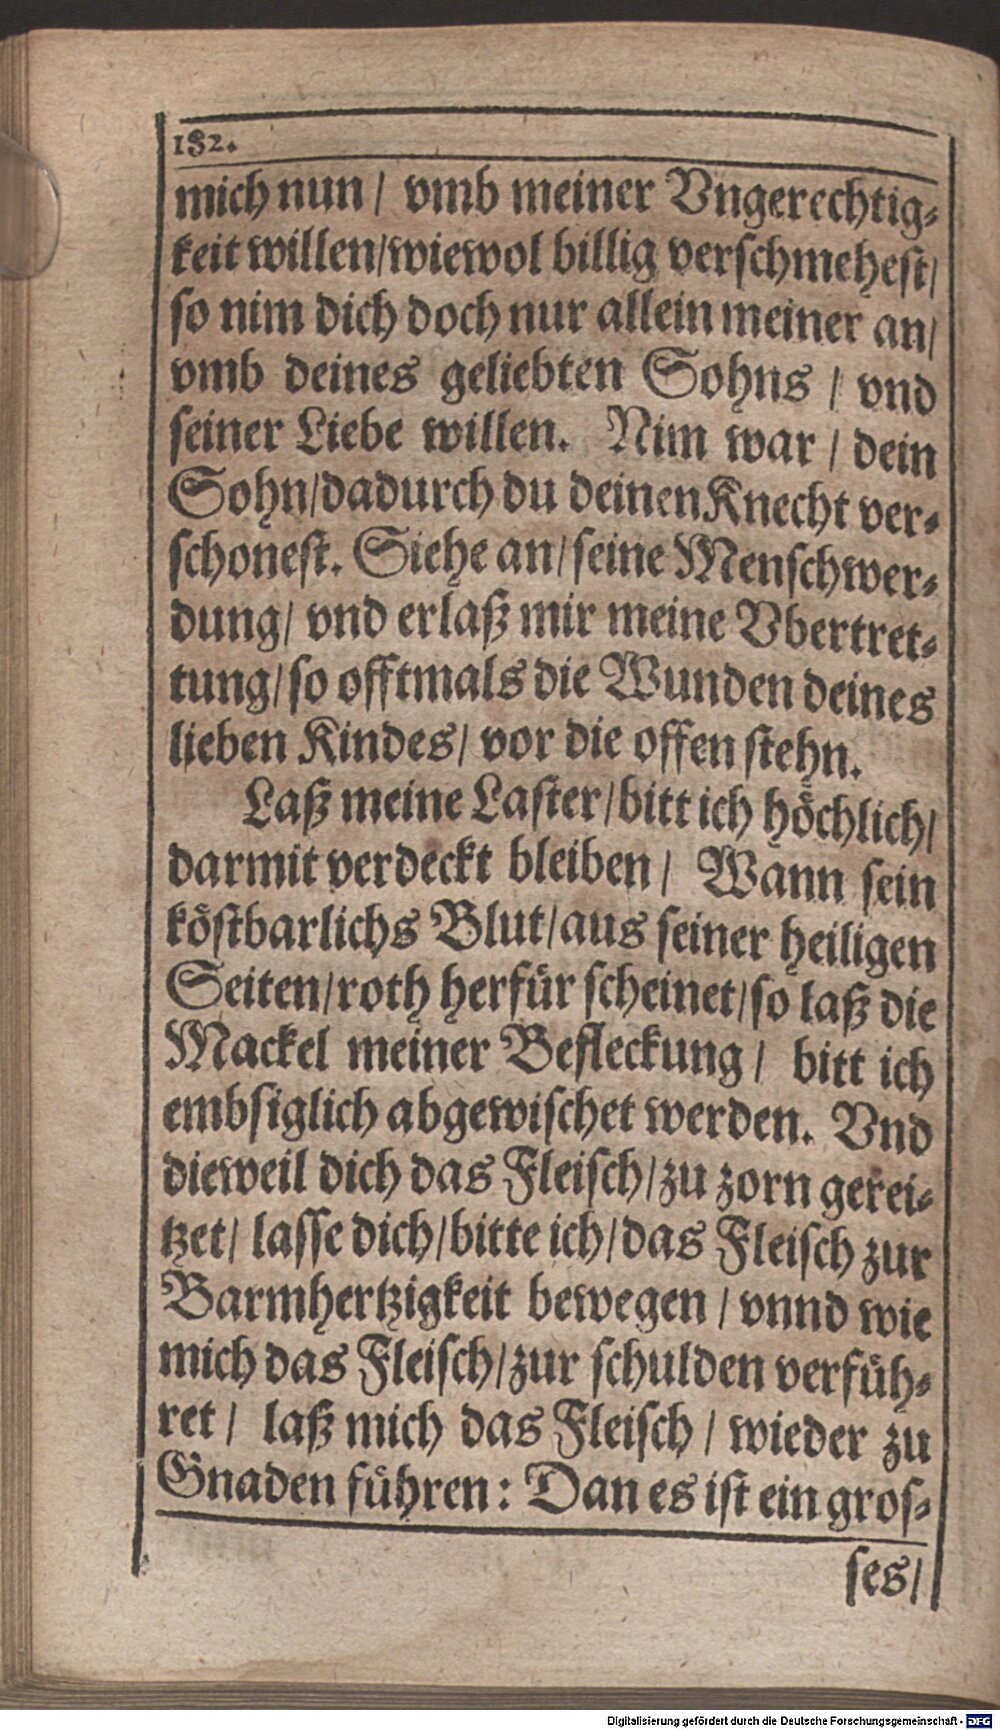 182.
mich nun / vmb meiner Vngerechtig-
keit willen/wiewol billig verschmehest/
so nim dich doch nur allein meiner an/
vmb deines geliebten Sohns / vnd
seiner Liebe willen. Nim war / dein
Sohn/dadurch du deinen Knecht ver-
schonest. Siehe an/seine Menschwer-
dung/ vnd erlaß mir meine Vbertret-
tung/so offtmals die Wunden deines
lieben Kindes/ vor die offen stehn.
Laß meine Laster/bitt ich hoͤchlich/
darmit verdeckt bleiben / Wann sein
koͤstbarlichs Blut/aus seiner heiligen
Seiten/roth herfuͤr scheinet/so laß die
Mackel meiner Befleckung / bitt ich
embsiglich abgewischet werden. Vnd
dieweil dich das Fleisch/zu zorn gerei-
tzet/ lasse dich/bitte ich/das Fleisch zur
Barmhertzigkeit bewegen / vnnd wie
mich das Fleisch/zur schulden verfuͤh-
ret / laß mich das Fleisch / wieder zu
Gnaden fuͤhren: Dan es ist ein gros-
ses/
Digitalisierung gefördert durch die Deutsche Forschungsgemeinschaft - DFG